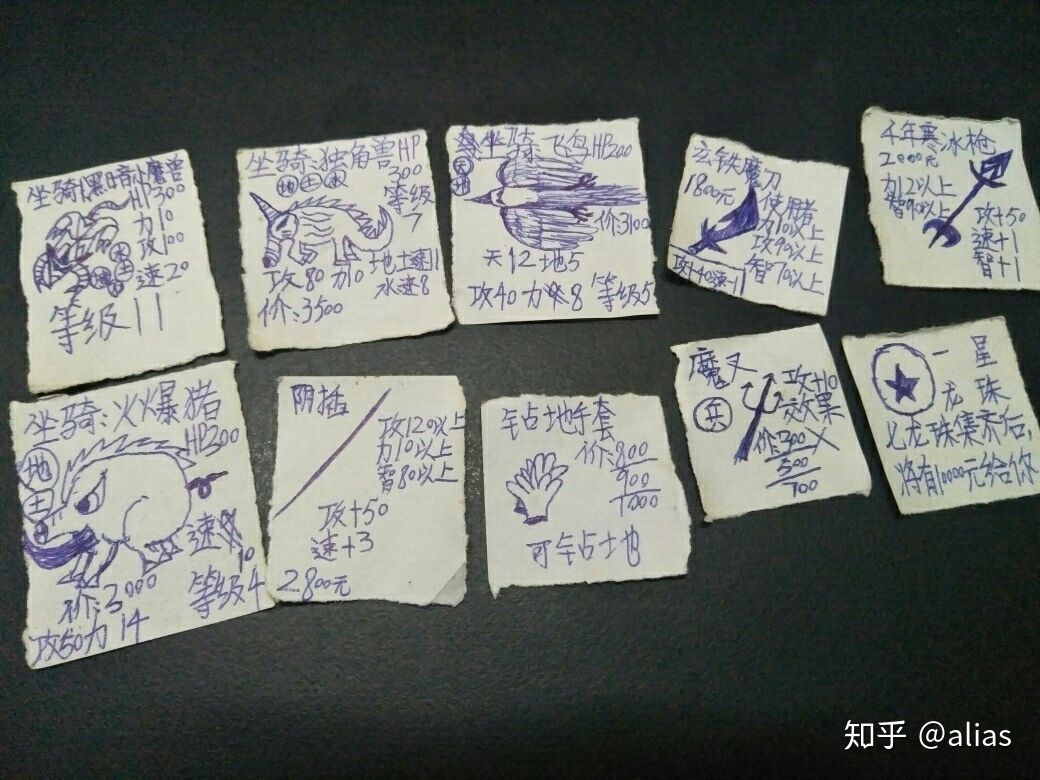 坐骑:黑暗小魔兽
HP300
力10
攻100
木
土
速20
等级11
坐骑:独角兽HP
300
地土水
等级
7
攻80力10地土速11
水速8
价:3500
坐骑飞鸟HP200
天
地
价:3100
天12地5
攻40力8等级5
玄铁魔刀
1800元
使用者
力10以上
攻90以上
智70以上
攻+40速-1
千年寒冰枪
2000元
力12以上
智90以上
攻+50
速+1
智+1
坐骑:火爆猪
HP200
地
土
速
10
价:3000
等级4
攻50力14
阴插
攻120以上
力10以上
智80以上
攻+50
速+3
2800元
钻地手套
价:800
900
1000
可钻土地
魔叉
兵
攻+10
效果
价300
500
700
一星
龙珠
七龙珠集齐后,
将有10000元给你
知乎 @alias